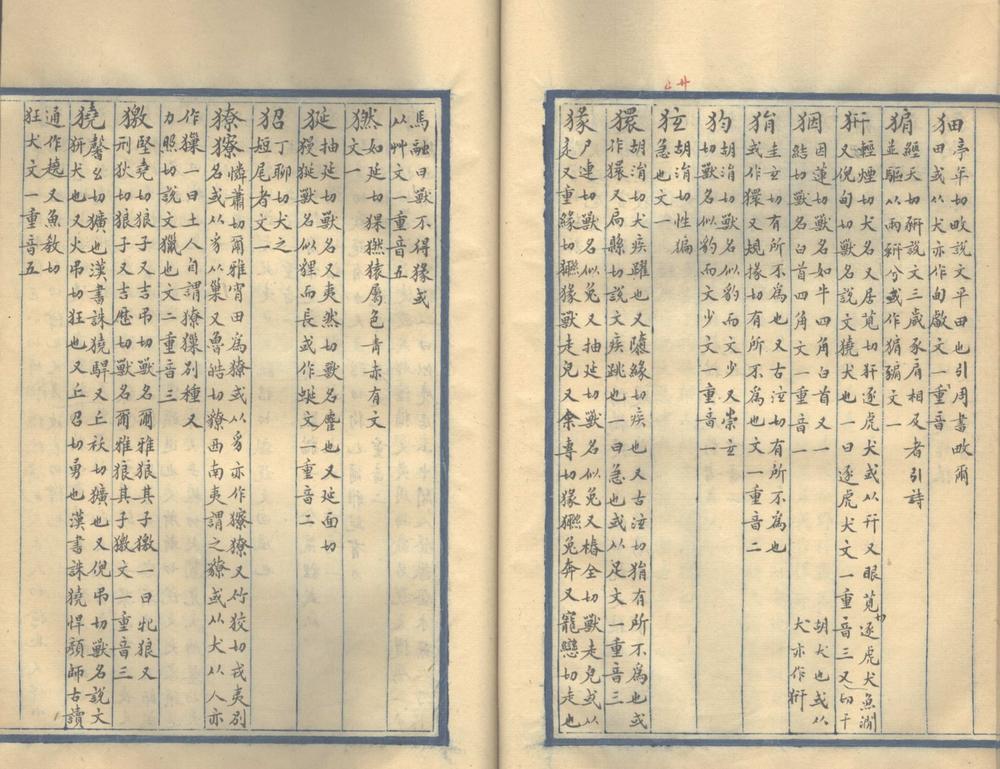 ⿰犭田亭年切畋說文平田也引周書畋爾
田田或从犬亦作甸文一重音
猏經天切豣說文三歲豕肩相及者引詩
並驅从兩豣兮或作猏豜文一
犴輕煙切犬名又居莧切犴逐虎犬或从幵又眼莧切逐虎犬魚澗
又倪甸切獸名說文獟犬也一曰逐虎犬文一重音三
胡犬也或从
犬亦作犴
因蓮切獸名如牛四角白首又一
結切獸名白首四角文一重音一
狷圭玄切有所不爲也又古泫切有所不爲也
或作獧又規掾切有所不爲也文一重音二
胡涓切獸名似豹而文少又崇玄
切獸名似豹而文少文一重音一
胡涓切性褊
急也文一
獧胡涓切犬疾躍也又隳緣切疾也又古泫切狷有所不爲也或
作獧又扃縣切說文疾跳也一曰急也或从足文一重音三
猭尸連切獸名似兔又抽延切獸名似兔又椿全切獸走皃或从
走又重緣切猭獸走皃又余專切猭兔奔又寵戀切走也
馬融曰獸不得猭或
从艸文一重音五
猭如延切猓猿屬色青赤有文
文一
狿抽延切獸名又夷然切獸名麞也又延面切
獌狿獸名似貍而長或作蜒文一重音二
㹦丁聊切犬之
短尾者文一
獠獠憐蕭切爾雅宵田爲獠或从豸亦作獠又竹狡切戎夷別
名或从豸从巢又魯皓切獠西南夷謂之獠或从犬从人亦
作一曰土人自謂獠別種又
力照切說文獵也文二重音三
獥堅堯切狼子又吉弔切獸名爾雅狼其子獥一曰牝狼又
刑狄切狼子又吉歷切獸名爾雅狼其子獥文一重音三
獟馨幺切獷也漢書誅獟駻又丘祅切獷也又倪弔切獸名說文
㹿犬也又火弔切狂也又丘召切勇也漢書誅獟悍顔師古讀
通作趬又魚敎切
狂犬文一重音五